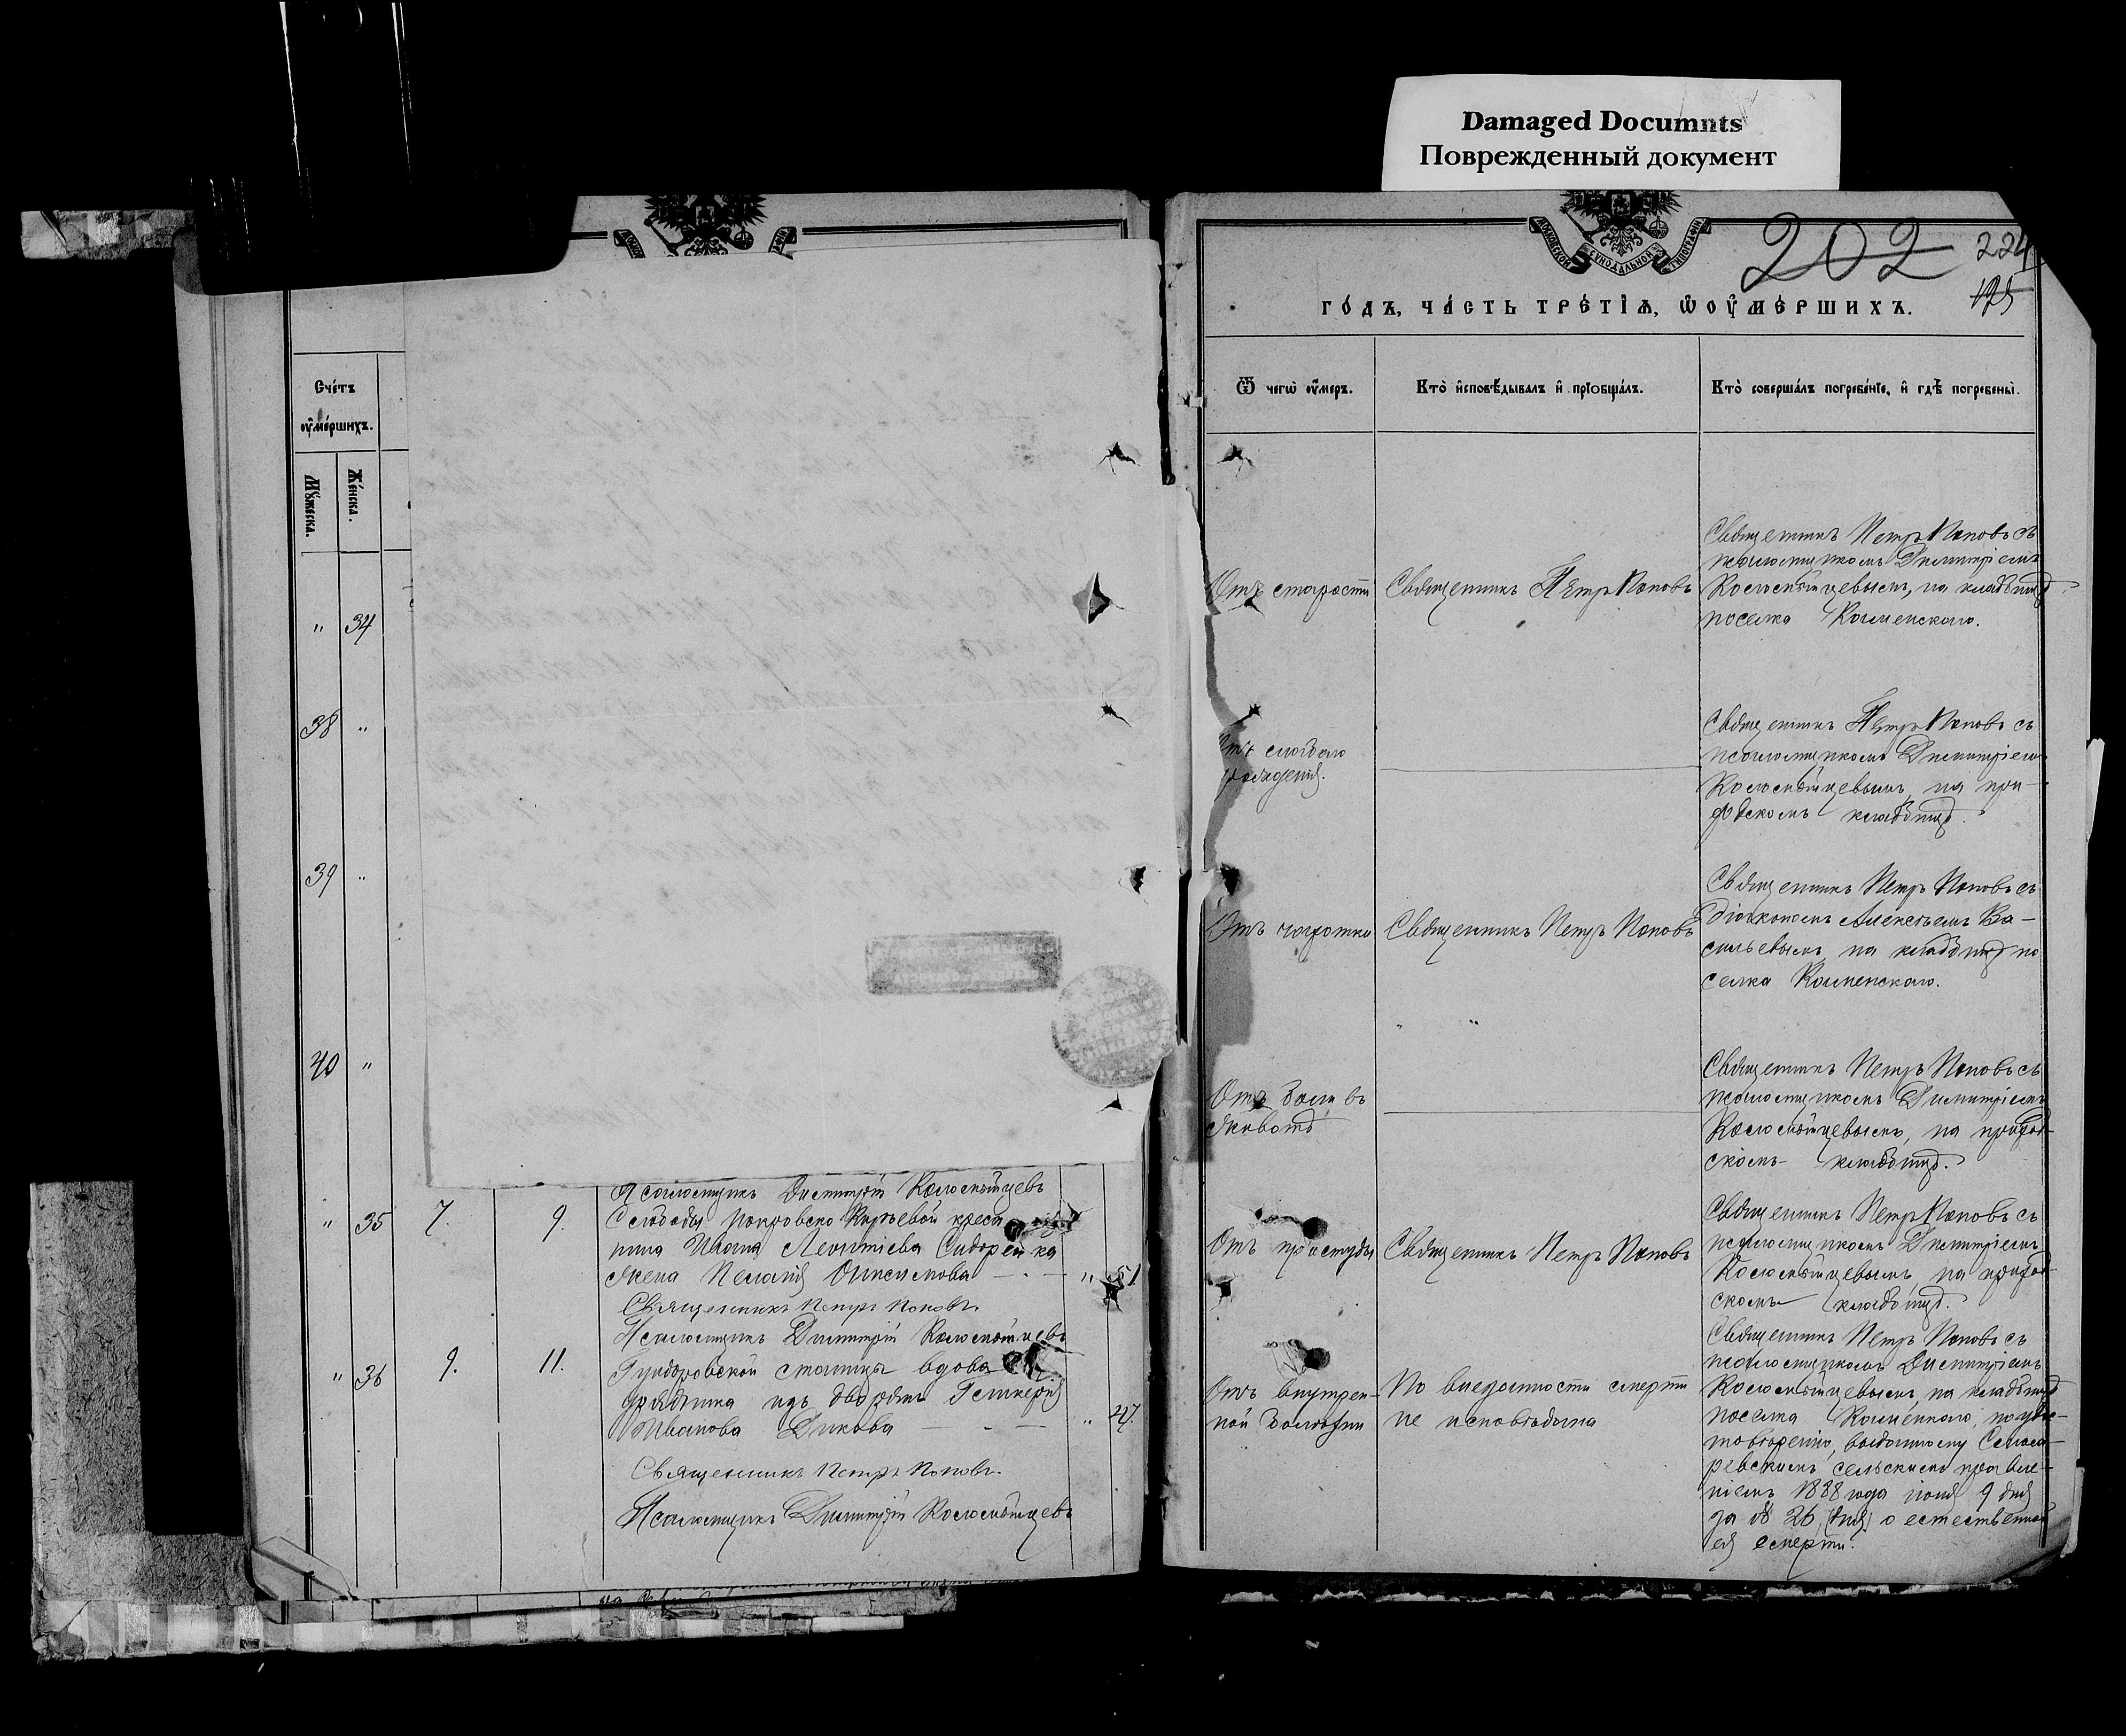 Damaged Documnts
Поврежденный документ
202
224
го́дъ, ча́сть тре́тїѧ, ѡ҆ оу҆ме́ршихъ.
Сче́тъ
оу҆ме́ршихъ.
Мꙋ́жеска.
Же́нска.
" 34
38 "
39 "
40 "
Псаломщикъ Димитрій Колоскѣйцевъ
" 35 7. 9. Слободы Покровско Киреевой крестья
нина Ивана Леонтіева Сидоренка
жена Пелагія Онисимова " 51
Священникъ Петръ Поповъ.
Псаломщикъ Димитрій
" 36 9. 11. Гундоровской станицы вдова
урядника изъ дворянъ Гликерія
Иванова Дикова " 47.
Священникъ Петръ Поповъ.
Псаломщикъ Димитрій
Ѿ чегѡ̀ оу҆́меръ.
Кто̀ и҆сповѣ́дывалъ и҆ прїобща́лъ.
Кто̀ соверша́лъ погребе́нїе, и҆ гдѣ̀ погребены̀.
Отъ старости
Священникъ Петръ Поповъ
Священникъ Петръ Поповъ съ
псаломщикомъ Димитріемъ
на кладбищѣ
поселка Каменскаго.
Отъ слабаго
рожденія.
Священникъ Петръ Поповъ съ
псаломщикомъ Димитріемъ
на при-
ходскомъ кладбищѣ.
Отъ чахотки
Священникъ Петръ Поповъ
Священникъ Петръ Поповъ съ
діакономъ Алексѣемъ Ва-
сильевымъ, на кладбищѣ по
селка Каменскаго.
" "
Отъ боли въ
животѣ
Священникъ Петръ Поповъ съ
псаломщикомъ Димитріемъ
на приход-
скомъ кладбищѣ.
Отъ простуды
Священникъ Петръ Поповъ
Священникъ Петръ Поповъ съ
псаломщикомъ Димитріемъ
на приход-
скомъ кладбищѣ.
Отъ внутрен-
ной болѣзни
По внезапности смерти
не исповѣдана
Священникъ Петръ Поповъ съ
псаломщикомъ Димитріемъ
на кладбищѣ
поселка Каменскаго, по удос-
товѣренію, выданному
сельскимъ правле-
ніемъ 1888 года іюня 9 дня
за № 26, о естественной
ея смерти.